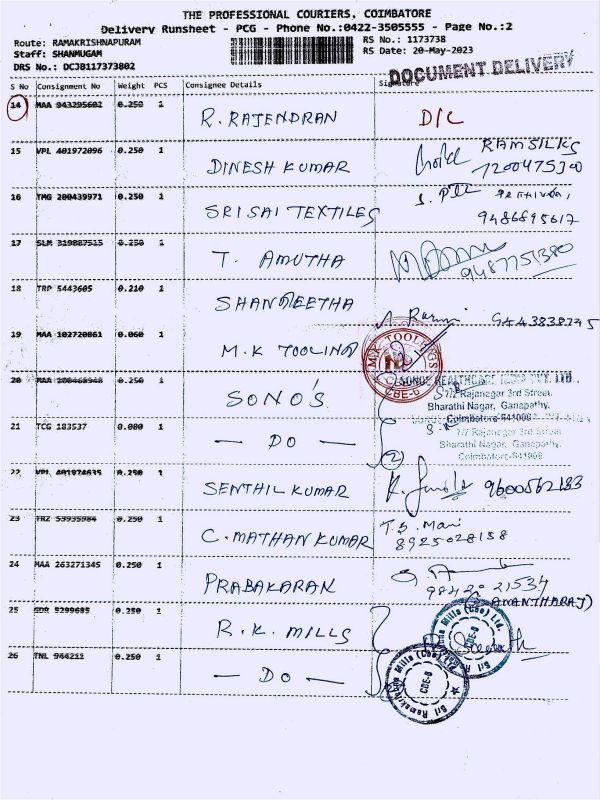 THE PROFESSIONAL COURIERS, COIMBATORE
Delivery Runsheet - PCG - Phone No.:0422-3505555 - Page No.:2
Route: RAMAKRISHNAPURAM RS No.: 1173738
Staff: SHANMUGAM RS Date: 20-May-2023
DRS No.: DCJB117373802
DOCUMENT DELIVERY
S No Consignment No Weight PCS Consignee Details Signature
14 MAA 943295602 0.250 1 R. RAJENDRAN D/C
15 VPL 401972096 0.250 1 DINESH KUMAR RAM SILKS
7200475300
16 TMG 200439971 0.250 1 SRI SAI TEXTILES
9486895617
17 SLM 319887515 0.250 1 T. AMUTHA
9487751380
18 TRP 5443605 0.210 1
9443838745
19 MAA 102720861 0.060 1 M.K TOOLING
M.K TOOLINGS
CBE-6
20 MAA 1.250 1 SONO'S
HEALTHCARE INDIA PVT. LTD.,
7/7 Rajanagar 3rd Street,
Bharathi Nagar, Ganapathy,
Coimbatore-641006
21 TCG 183537 0.080 1 — DO —
7/7 Rajanagar 3rd Street,
Bharathi Nagar, Ganapathy,
Coimbatore-641006
2
22 VPL 401974635 0.250 1 SENTHIL KUMAR 9600562183
23 TRZ 53935984 0.250 1 C. MATHAN KUMAR T.S. Mari
8925028158
24 MAA 263271345 0.250 1 PRABAKARAN
98420 21534
(ANANTHARAJ)
25 SDR 5299685 0.250 1 R.K. MILLS
26 TNL 944211 0.250 1 — DO —
Sri Ramakrishna Mills (Cbe) Ltd.
CBE-6
Sri Ramakrishna Mills (Cbe) Ltd.
CBE-6